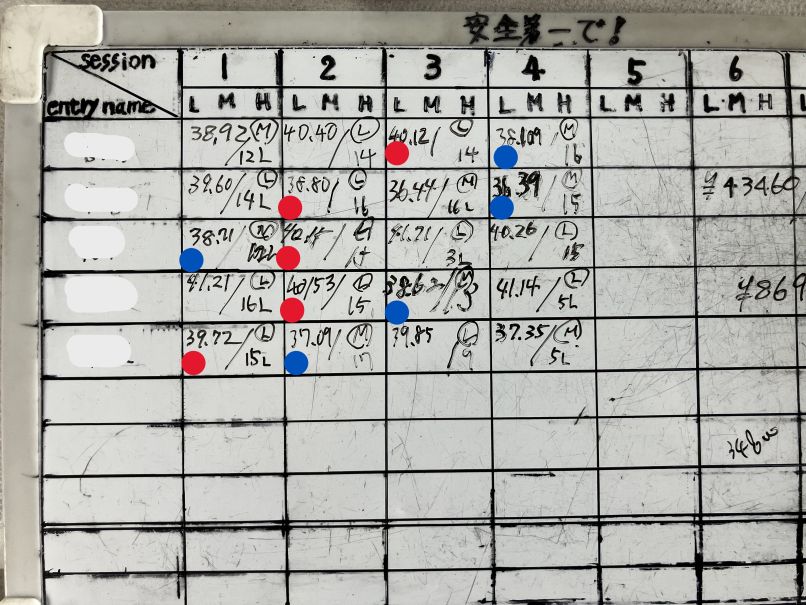 安全第一で!
session 1 2 3 4 5 6
entry name L M H L M H L M H L M H L M H L M H
38.92/Ⓜ 40.40/Ⓛ 40.12/Ⓛ 38.109/Ⓜ
12L 14 14 16
39.60/Ⓛ 38.80/Ⓛ 36.44/Ⓜ 36.39/Ⓜ ¥43460
14L 16 16L 15
38.21/ 41.21/Ⓛ 40.26/Ⓛ
3L 15
41.21/Ⓛ 40.53/ 41.14/Ⓛ ¥869
16L 15 5L
39.72/Ⓛ 37.09/Ⓜ 39.85/Ⓛ 37.35/Ⓜ
15L 17 9 5L